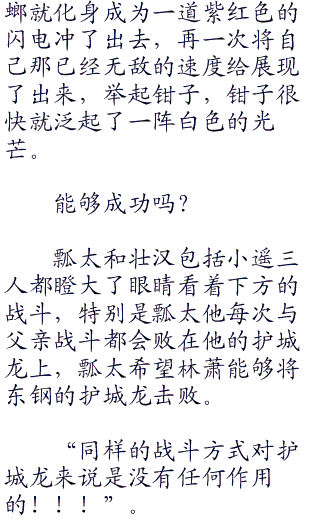 螂就化身成为一道紫红色的
闪电冲了出去，再一次将自
己那已经无敌的速度给展现
了出来，举起钳子，钳子很
快就泛起了一阵白色的光
芒。
能够成功吗？
瓢太和壮汉包括小遥三
人都瞪大了眼睛看着下方的
战斗，特别是瓢太他每次与
父亲战斗都会败在他的护城
龙上，瓢太希望林萧能够将
东钢的护城龙击败。
“同样的战斗方式对护
城龙来说是没有任何作用
的！！！”。